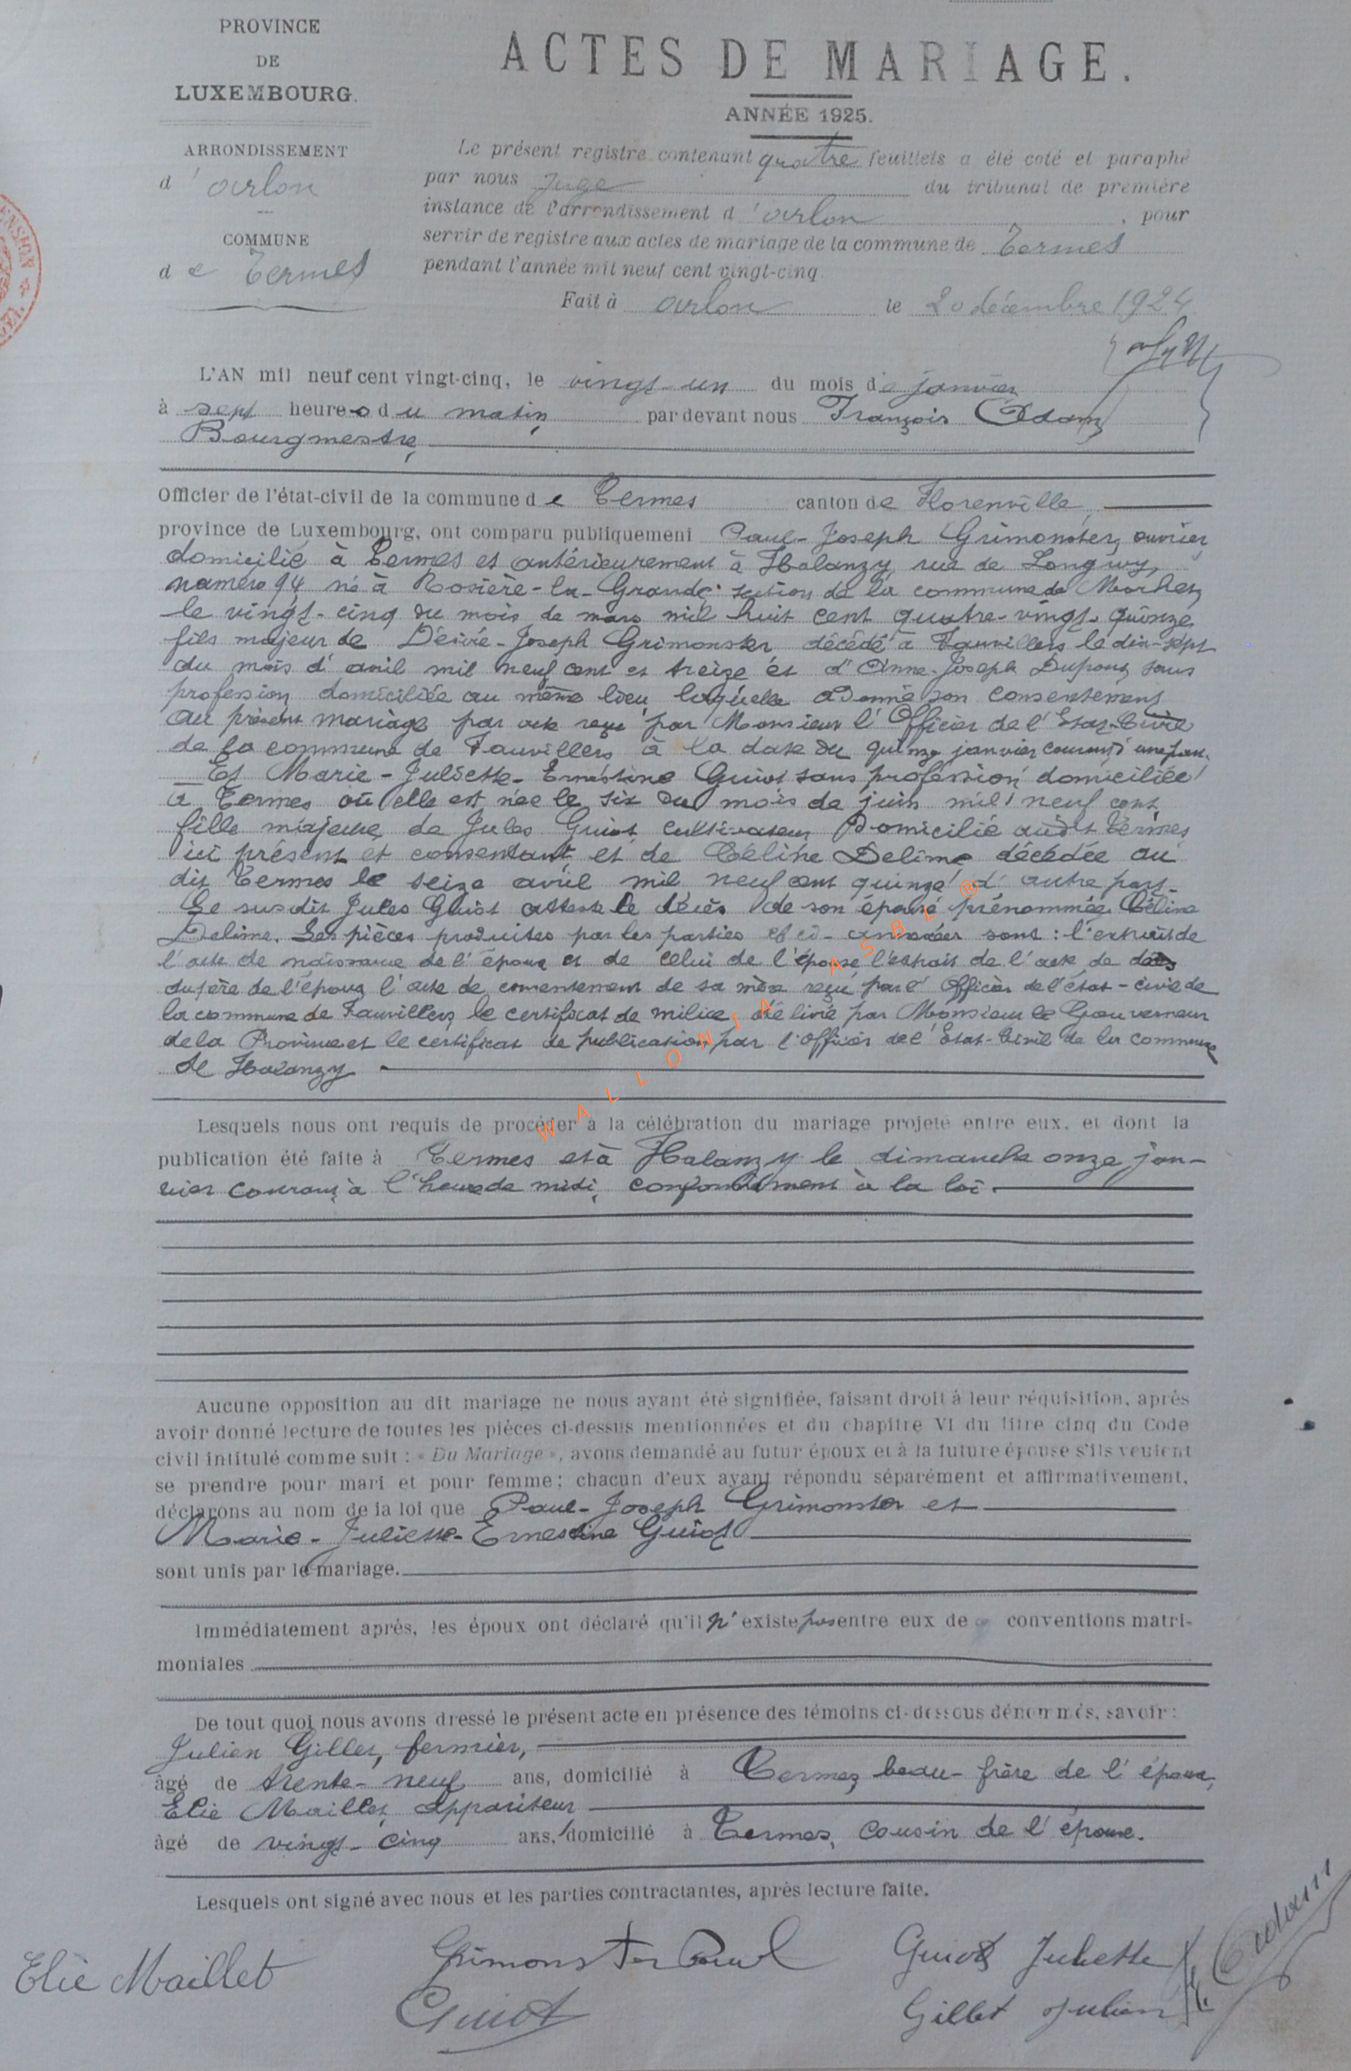 PROVINCE
DE
LUXEMBOURG.
ARRONDISSEMENT
d'arlon
COMMUNE
de Termes
ACTES DE MARIAGE.
ANNÉE 1925.
Le présent registre contenant quatre feuillets a été coté et paraphé
par nous juge du tribunal de première
instance de l'arrondissement d'arlon, pour
servir de registre aux actes de mariage de la commune de Termes
pendant l'année mil neuf cent vingt-cinq.
Fait à arlon le 20 décembre 1924
L'AN mil neuf cent vingt-cinq, le vingt-un du mois de janvier
à sept heures du matin par devant nous François Adam,
Bourgmestre,
Officier de l'état-civil de la commune de Termes canton de Florenville,
province de Luxembourg, ont comparu publiquement Paul-Joseph Grimonster, ouvrier,
domicilié à Termes et antérieurement à Halanzy, rue de Longwy,
numéro 94 né à Rosière-la-Grande section de la commune de Morhet,
le vingt-cinq du mois de mars mil huit cent quatre-vingt-quinze
fils majeur de Désiré-Joseph Grimonster décédé à Fauvillers le dix-sept
du mois d'avril mil neuf cent et treize et d'Anne-Joseph Dupont, sans
profession, domiciliée au même lieu, laquelle a donné son consentement
au présent mariage par acte reçu par Monsieur l'Officier de l'Etat-Civil
de la commune de Fauvillers à la date du quinze janvier courant, d'une part.
Et Marie-Juliette-Ernestine Guiot sans profession domiciliée
à Termes où elle est née le six du mois de juin mil neuf cent
fille majeure de Jules Guiot cultivateur domicilié audit Termes
ici présent et consentant, et de Céline Delime décédée au
dit Termes le seize avril mil neuf cent quinze d'autre part.
Le susdit Jules Guiot atteste le décès de son épouse prénommée Céline
Delime. Les pièces produites par les parties et ci-annexées sont : l'extrait de
l'acte de naissance de l'époux et de celui de l'épouse l'extrait de l'acte de décès
du père de l'époux l'acte de consentement de sa mère reçu par l'Officier de l'état-civil de
la commune de Fauvillers, le certificat de milice délivré par Monsieur le Gouverneur
de la Province et le certificat de publication par l'officier de l'Etat-Civil de la commune
de Halanzy
WALLONIA ASBL ®
Lesquels nous ont requis de procéder à la célébration du mariage projeté entre eux, et dont la
publication été faite à Termes et à Halanzy le dimanche onze jan-
vier courant à l'heure de midi, conformément à la loi.
Aucune opposition au dit mariage ne nous ayant été signifiée, faisant droit à leur réquisition, après
avoir donné lecture de toutes les pièces ci-dessus mentionnées et du chapitre VI du titre cinq du Code
civil intitulé comme suit : « Du Mariage », avons demandé au futur époux et à la future épouse s'ils veulent
se prendre pour mari et pour femme ; chacun d'eux ayant répondu séparément et affirmativement,
déclarons au nom de la loi que Paul-Joseph Grimonster et
Marie-Juliette-Ernestine Guiot
sont unis par le mariage.
Immédiatement après, les époux ont déclaré qu'il n'existe pas entre eux de conventions matri-
moniales
De tout quoi nous avons dressé le présent acte en présence des témoins ci-dessous dénommés, savoir :
Julien Gillet, fermier,
âgé de trente-neuf ans, domicilié à Termes, beau-frère de l'épouse,
Elie Maillet, appariteur
âgé de vingt-cinq ans, domicilié à Termes, cousin de l'épouse.
Lesquels ont signé avec nous et les parties contractantes, après lecture faite.
Elie Maillet
Grimonster Paul
Guiot Juliette
Guiot
Gillet Julien
F. Adam